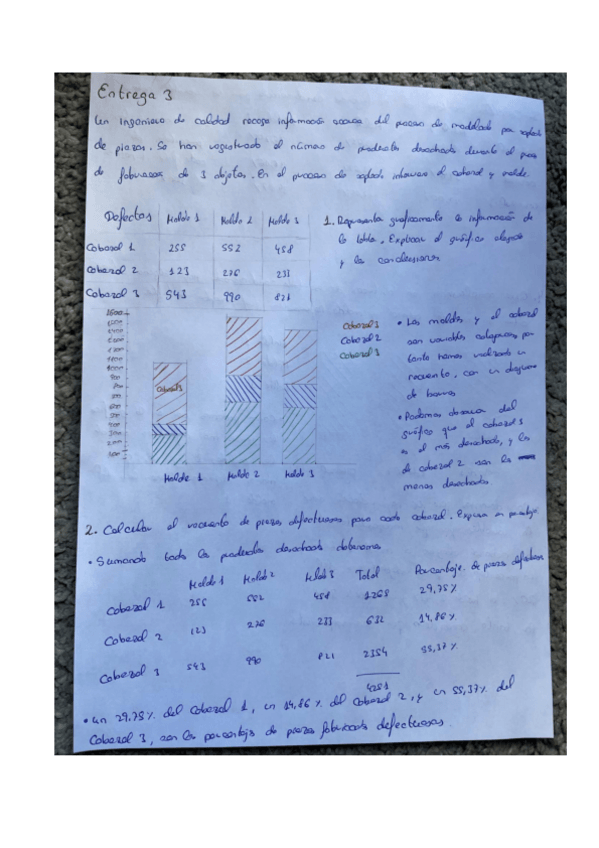 Entrega 3
Un ingeniero de calidad recoge información acerca del proceso de moldeado por soplado
de piezas. Se han registrado el número de productos desechados durante el proceso
de fabricación de 3 objetos. En el proceso de soplado interviene el cabezal y molde.
Defectos Molde 1 Molde 2 Molde 3
Cabezal 1 255 552 458
Cabezal 2 123 276 233
Cabezal 3 543 990 821
1. Representa gráficamente la información de
la tabla. Explicar el gráfico elegido
y las conclusiones
Cabezal 1
Cabezal 2
Cabezal 3
Cabezal 1
Molde 1 Molde 2 Molde 3
• Los moldes y el cabezal
son variables categóricas por
tanto hemos realizado un
recuento, con un diagrama
de barras
• Podemos observar del
gráfico que el cabezal 3
es el más desechado, y los
de cabezal 2 son los
menos desechados
2. Calcular el recuento de piezas defectuosas para cada cabezal. Expresa en porcentaje
• Sumando todos los productos desechados obtenemos
Molde 1 Molde 2 Molde 3 Total Porcentaje de piezas defectuosas
Cabezal 1 255 552 458 1265 29,75%
Cabezal 2 123 276 233 632 14,86%
Cabezal 3 543 990 821 2354 55,37%
4251
• un 29,75% del Cabezal 1, un 14,86% del Cabezal 2, y un 55,37% del
Cabezal 3, son los porcentajes de piezas fabricadas defectuosas.